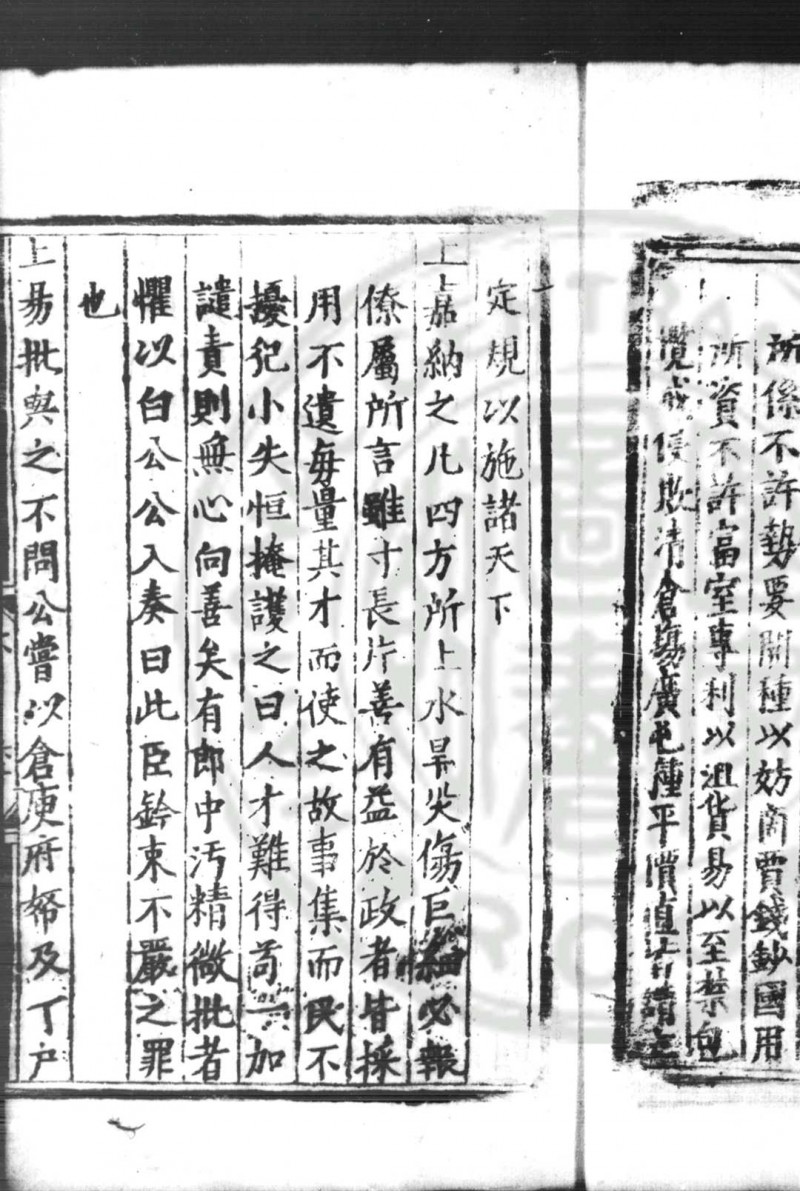 所係不許勢要開種以妨商賈錢鈔國用
所資不許富室專利以沮貨易以至禁包
攬 侵欺清倉場廣屯種平價直皆請
定規以施諸天下
上嘉納之凡四方所上水旱災傷巨細必報
僚屬所言雖寸長片善有益於政者皆採
用不遺每量其才而使之故事集而民不
擾犯小失恒掩護之曰人才難得苟一加
譴責則無心向善矣有郎中污精微批者
懼以白公公入奏曰此臣鈐束不嚴之罪
也
上易批與之不問公嘗以倉庾府帑及丁户